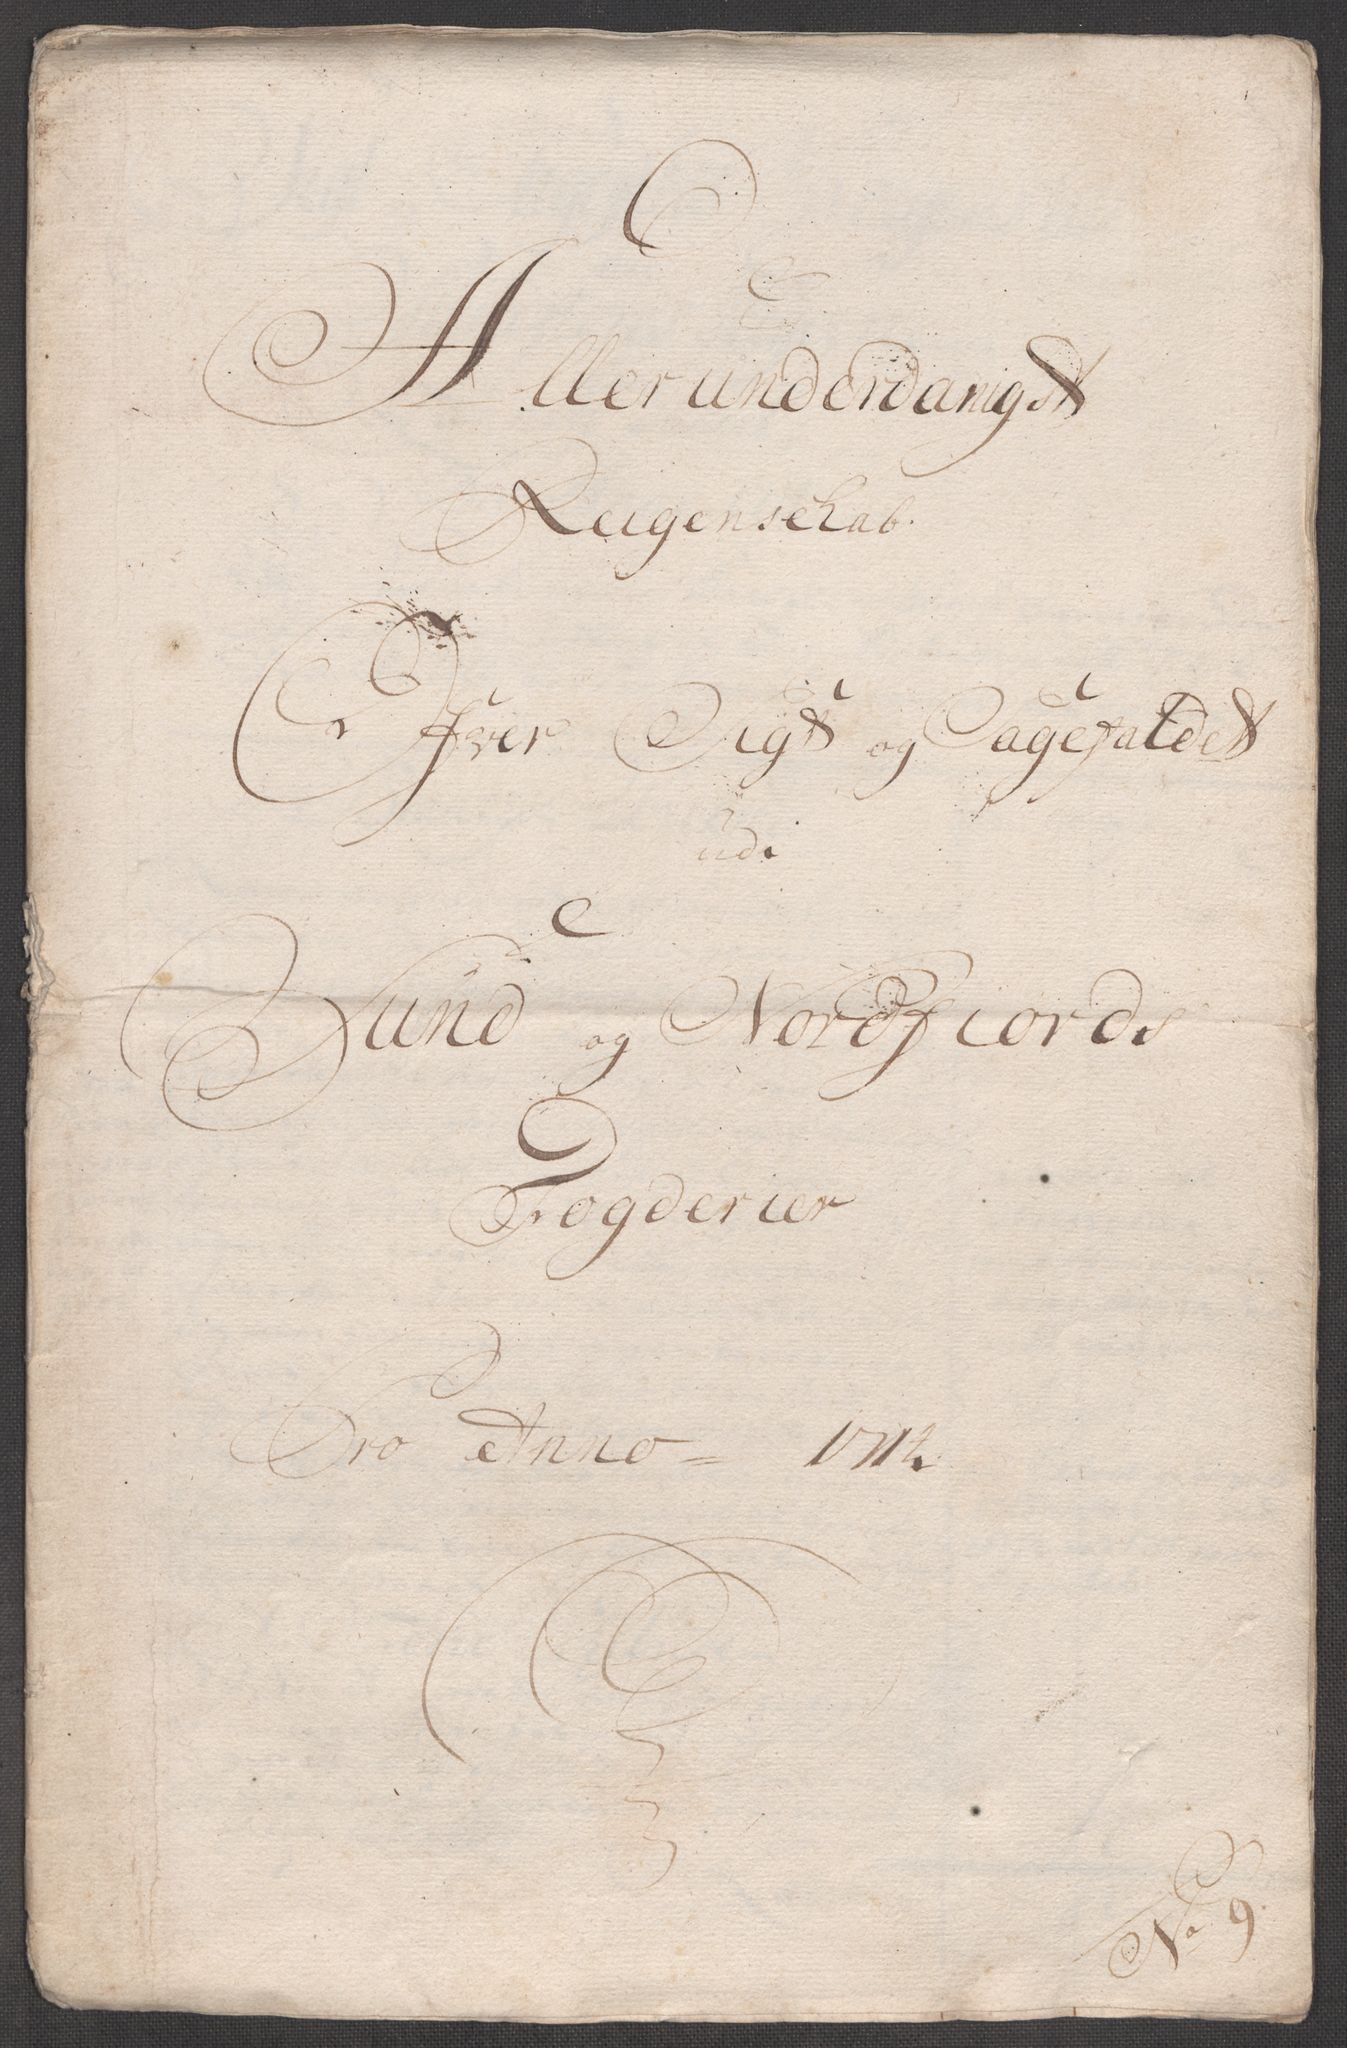 Allerunderdanigst
Reigenschab.
Ofver Sigt og Sagefaldet
udi
Sund og Nordfiords
Fogderier
Pro Anno = 1712.
No 9.